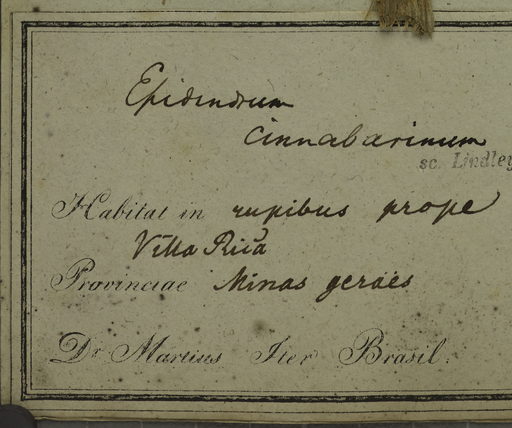 Epidendrum
cinnabarinum
sc. Lindley
Habitat in rupibus prope
Villa Rica
Provinciae Minas geraës
Dr. Martius Iter Brasil.